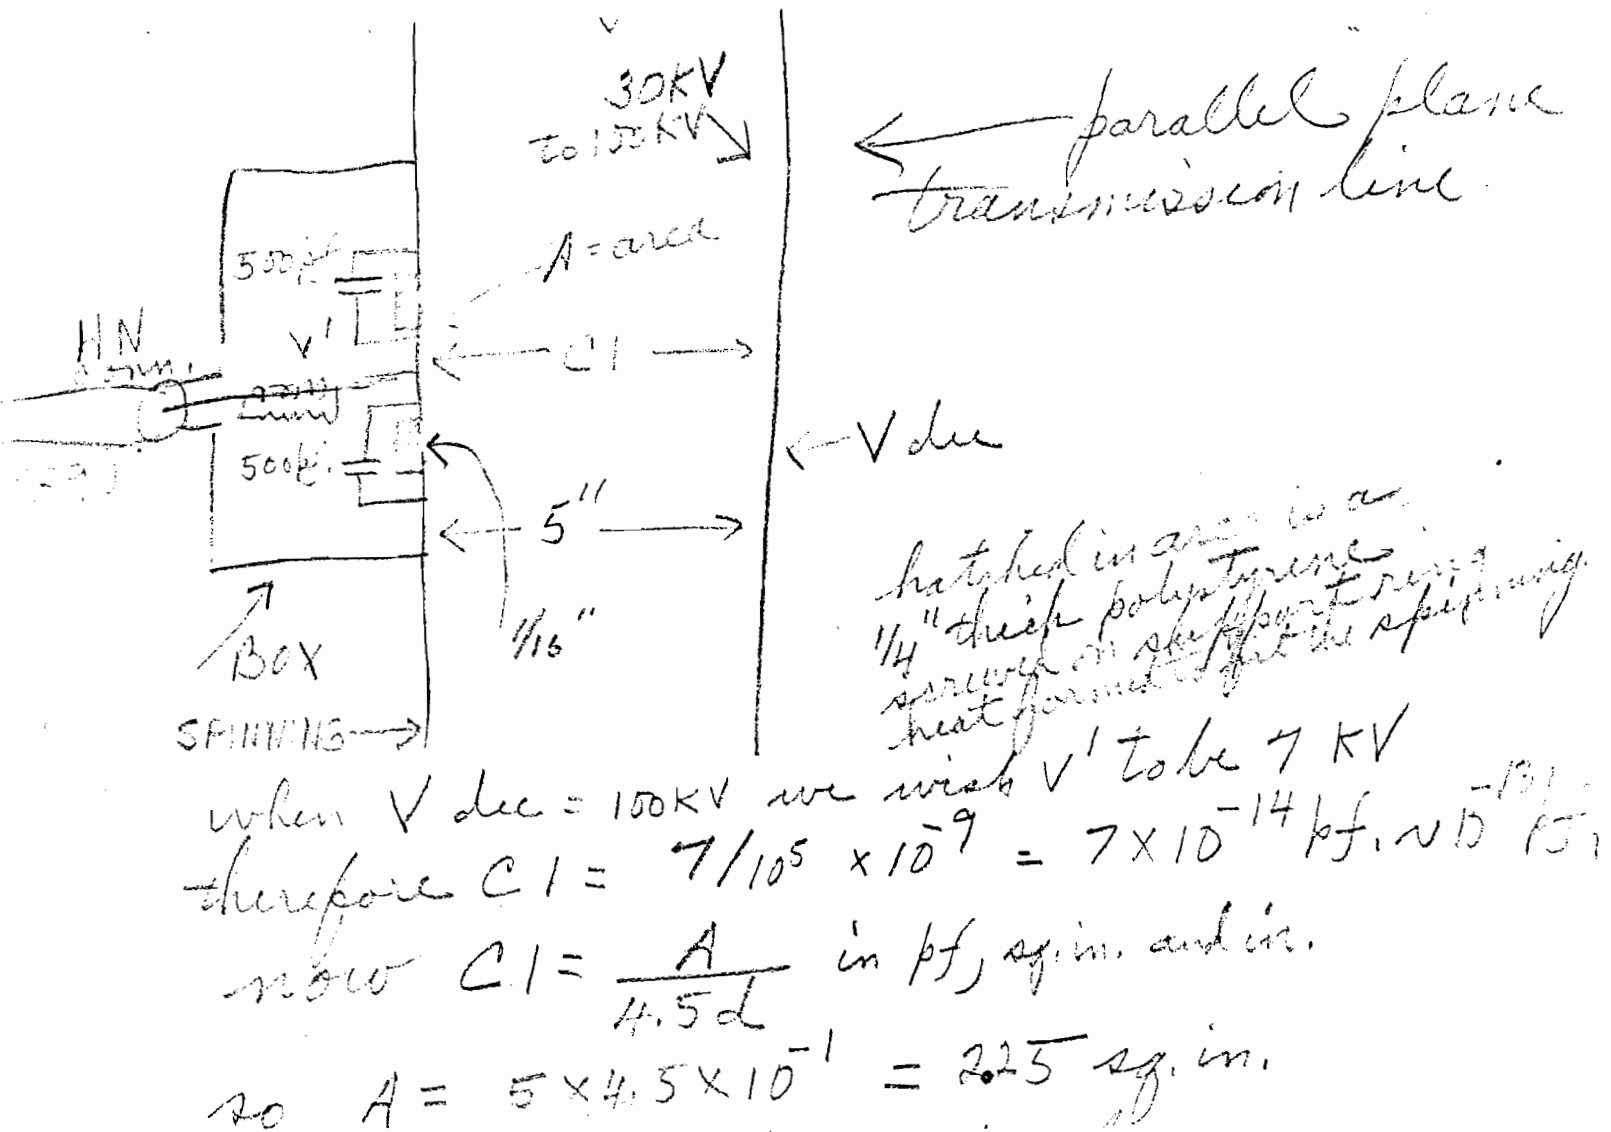 30KV
to 100KV
parallel plane
transmission line
A = area
500pf.
HN
V'
C1
V dee
500pf.
5"
1/16"
BOX
SPINNING
hatched in area is a
1/4" thick polystyrene
screwed on support ring
heat formed to fit the spinning.
when V dee = 100KV we wish V' to be 7 KV
therefore C1 = 7/10⁵ × 10⁻⁹ = 7 × 10⁻¹⁴ pf. ~ 10⁻¹³ pf.
now C1 = A / 4.5d in pf, sq.in. and in.
so A = 5 × 4.5 × 10⁻¹ = 2.25 sq. in.